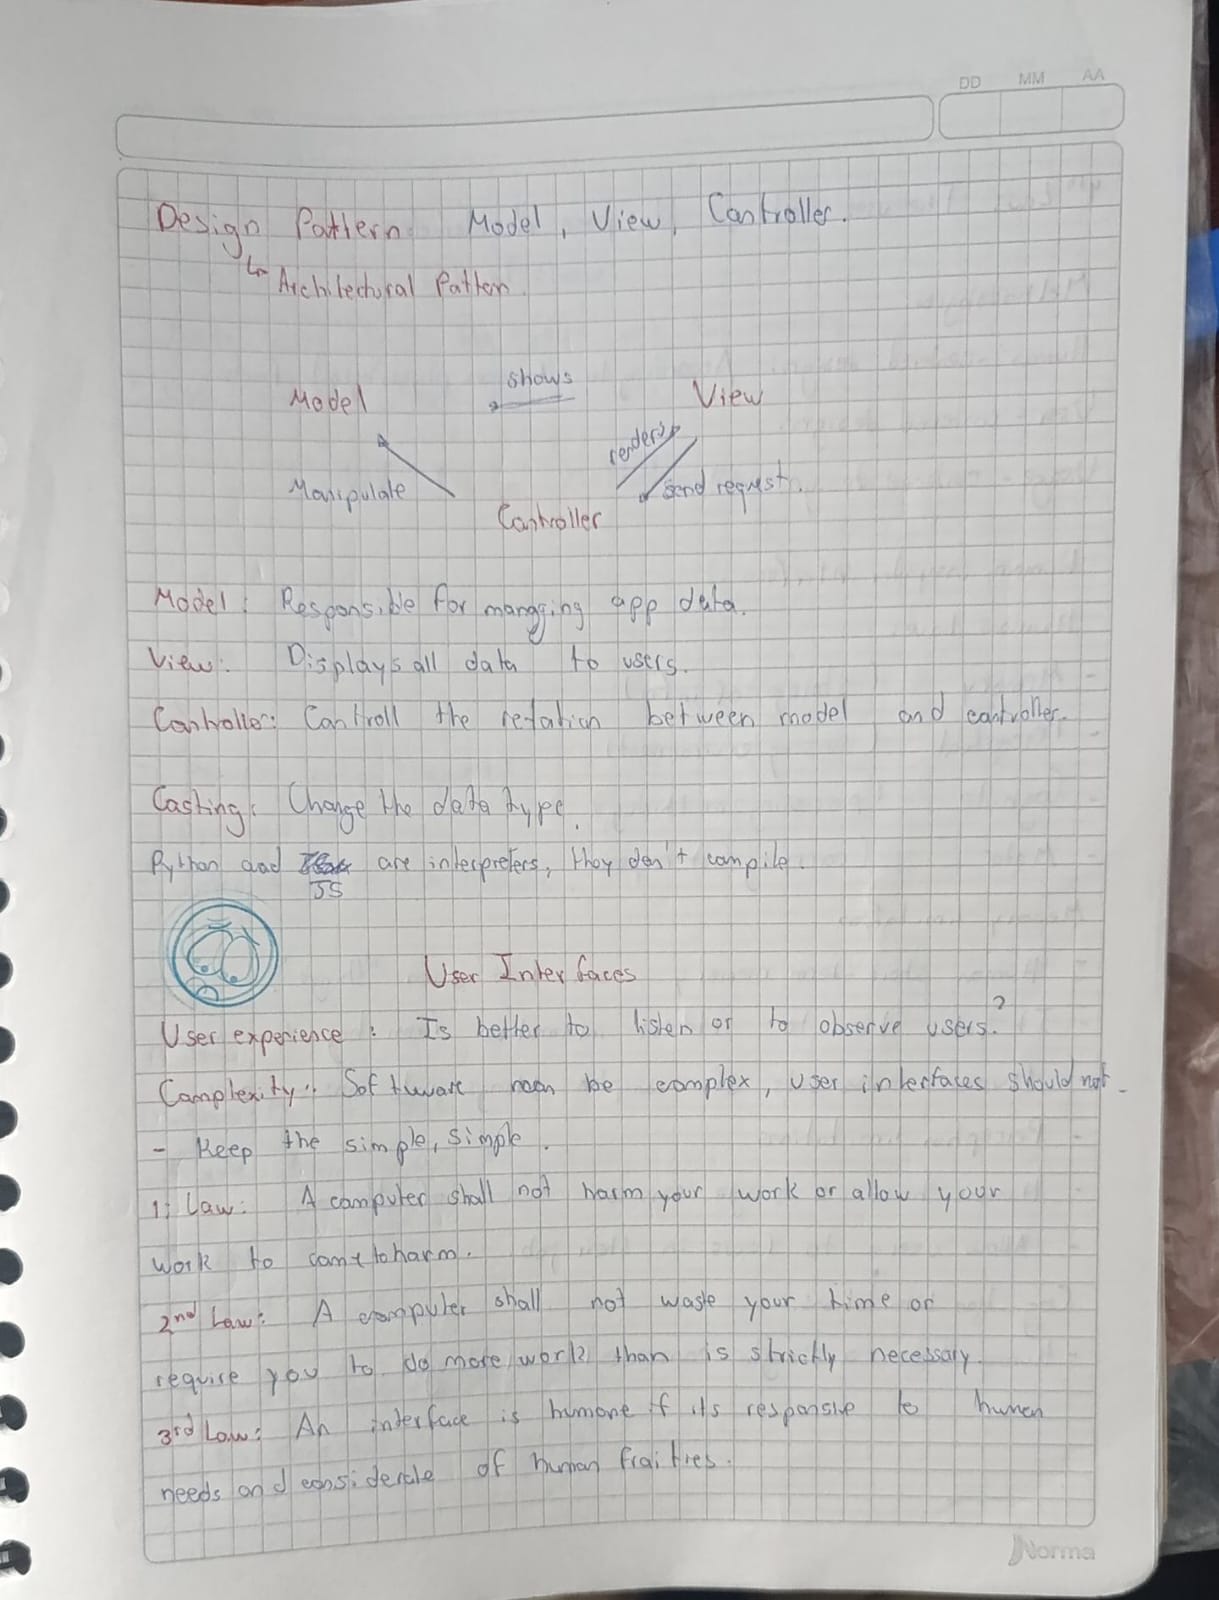 DD MM AA
Design Pattern Model, View, Controller.
Architectural Pattern
shows
Model View
renders
Manipulate send request.
Controller
Model: Responsible for mangging app data.
View: Displays all data to users.
Controller: Controll the relation between model and controller.
Casting: Change the data type.
Python and are interpreters, they don't compile.
JS
User Interfaces
User experience: Is better to listen or to observe users?
Complexity: Software can be complex, user interfaces should not
- Keep the simple, simple.
1: Law: A computer shall not harm your work or allow your
work to come to harm.
2nd Law: A computer shall not waste your time or
require you to do more work than is strictly necessary.
3rd Law: An interface is humane if its responsive to human
needs and considerate of human frailties.
Norma